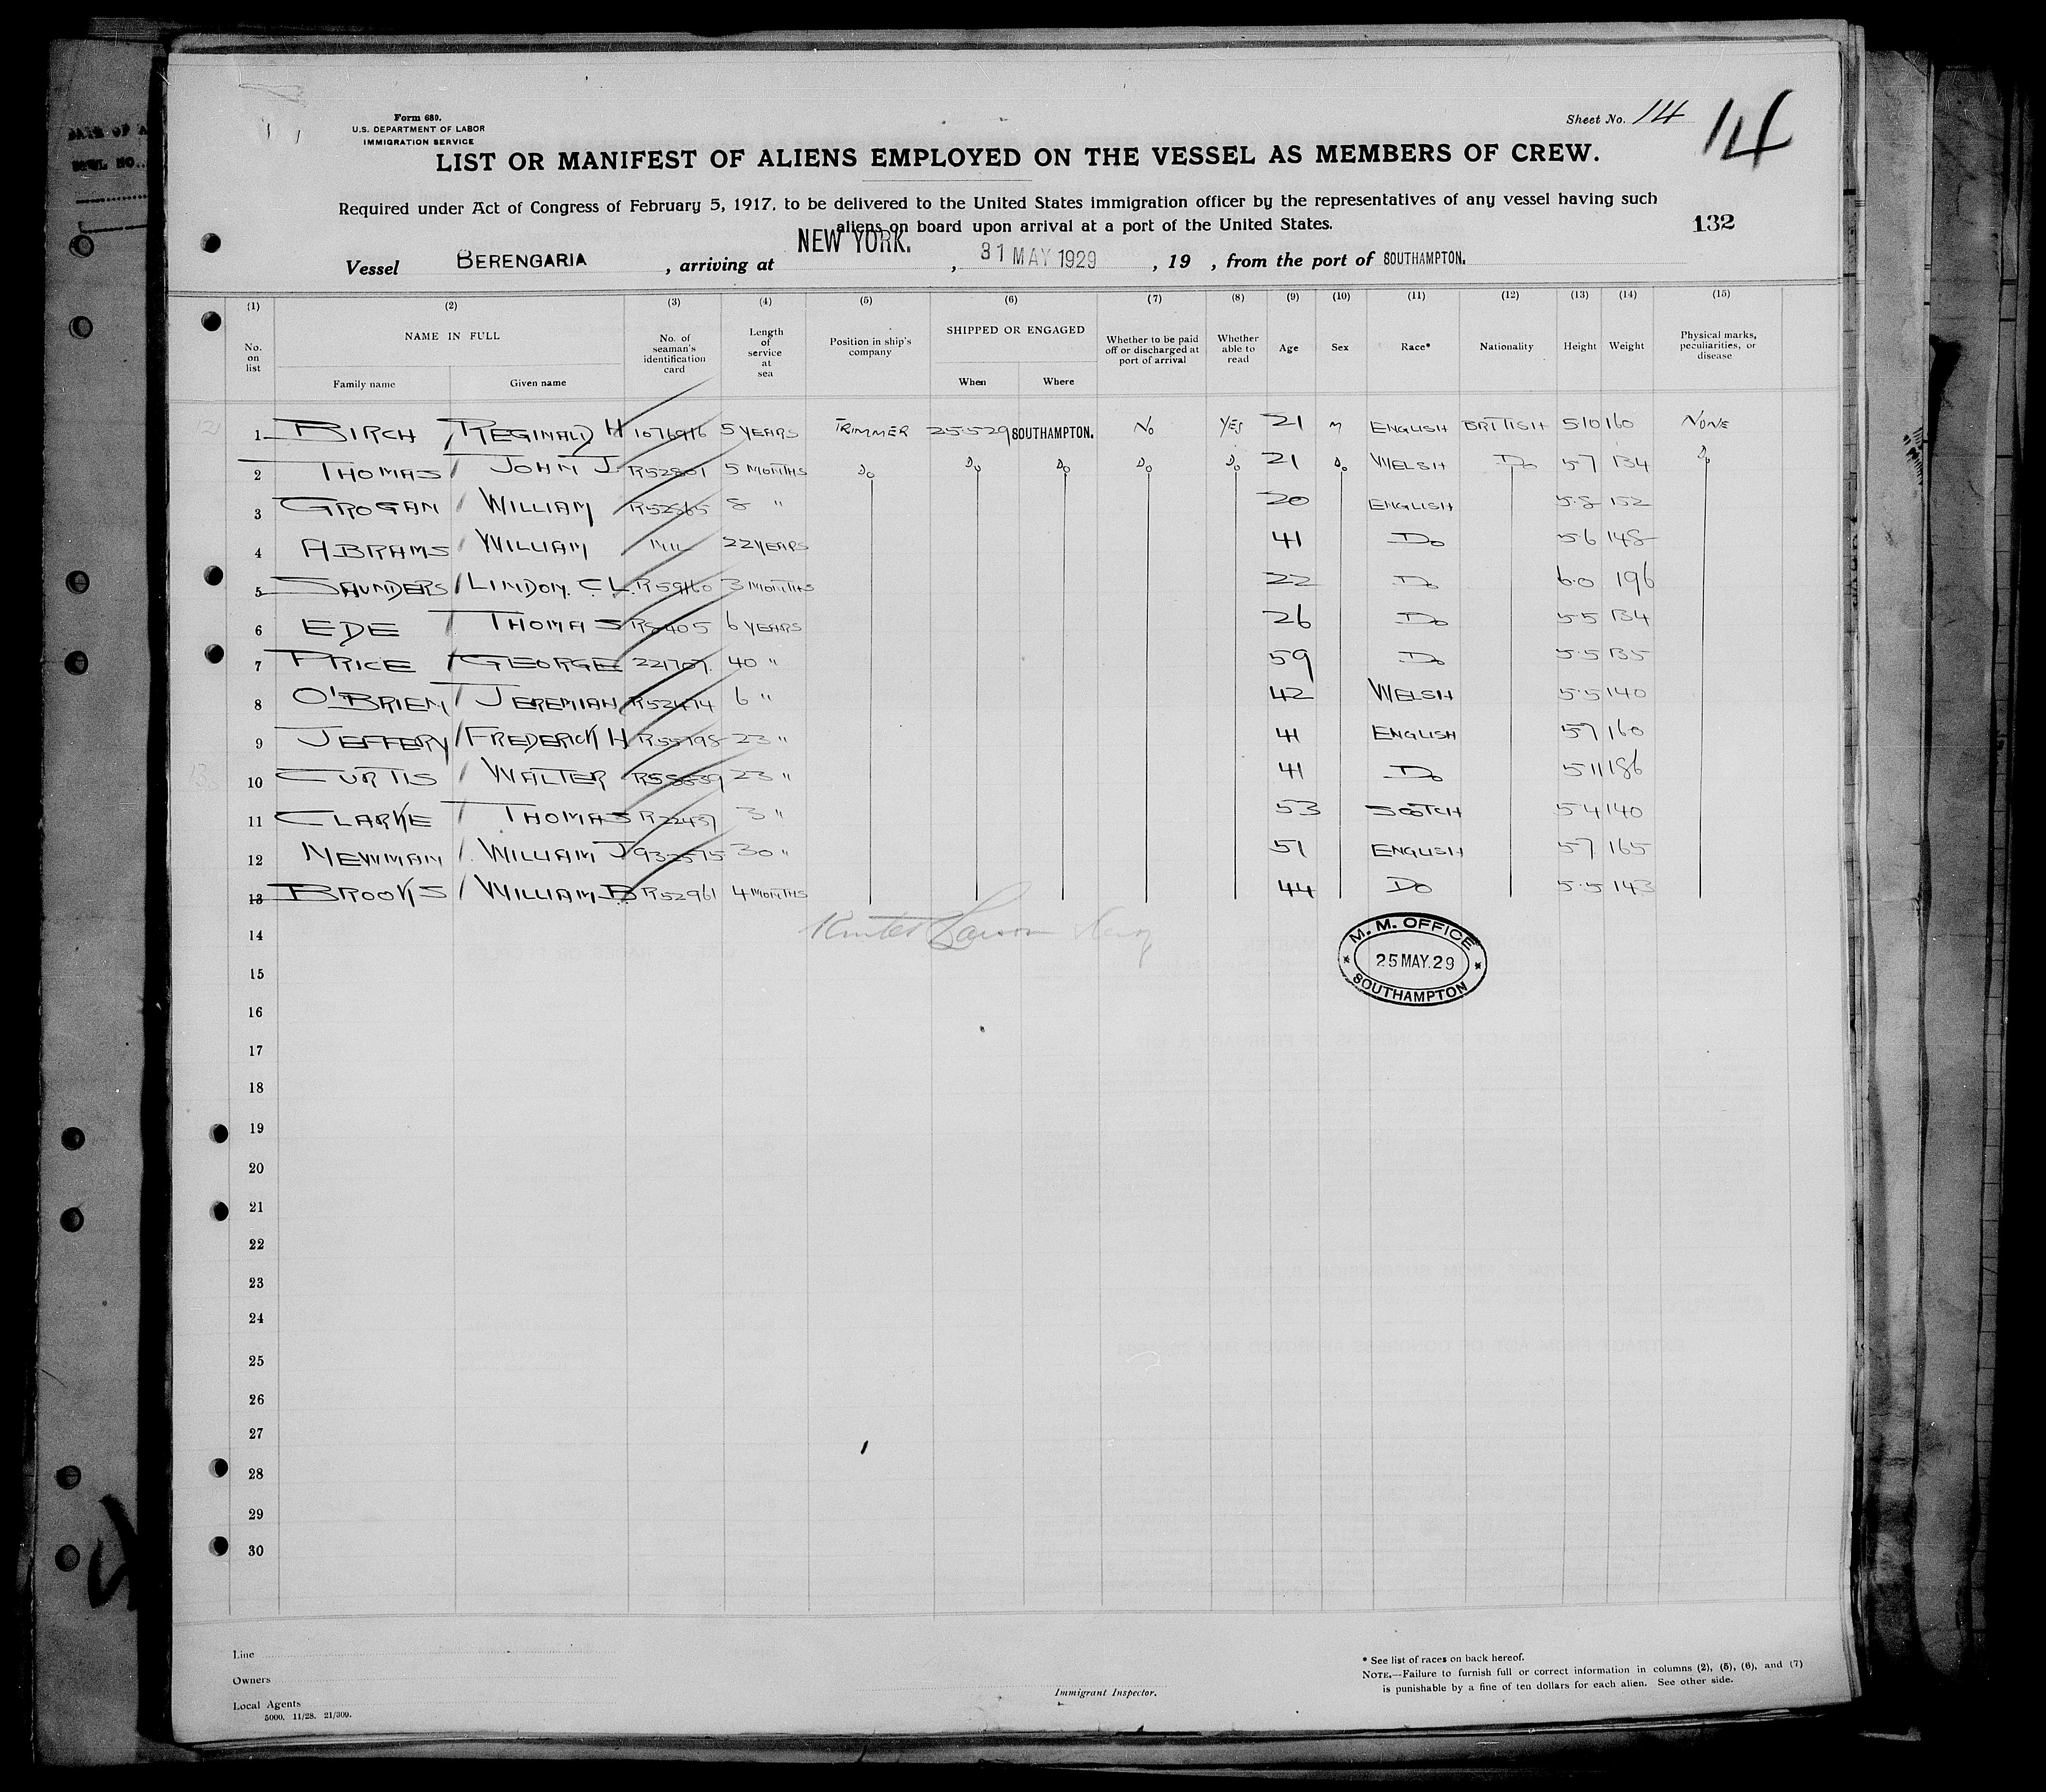 Form 680.
U.S. DEPARTMENT OF LABOR
IMMIGRATION SERVICE
Sheet No. 14
14
LIST OR MANIFEST OF ALIENS EMPLOYED ON THE VESSEL AS MEMBERS OF CREW.
Required under Act of Congress of February 5, 1917, to be delivered to the United States immigration officer by the representatives of any vessel having such
aliens on board upon arrival at a port of the United States.
132
Vessel BERENGARIA , arriving at NEW YORK. , 31 MAY 1929 , 19 , from the port of SOUTHAMPTON.
(1) (2) (3) (4) (5) (6) (7) (8) (9) (10) (11) (12) (13) (14) (15)
No. on list NAME IN FULL Family name Given name No. of seaman's identification card Length of service at sea Position in ship's company SHIPPED OR ENGAGED When Where Whether to be paid off or discharged at port of arrival Whether able to read Age Sex Race* Nationality Height Weight Physical marks, peculiarities, or disease
1 BIRCH REGINALD H 1076916 5 YEARS TRIMMER 25.5.29 SOUTHAMPTON. NO YES 21 M ENGLISH BRITISH 5.10 160 NONE
2 THOMAS JOHN J. R52801 5 MONTHS DO DO DO DO DO 21 DO WELSH DO 5.7 134 DO
3 GROGAN WILLIAM R52865 8 " 20 ENGLISH 5.8 152
4 ABRAMS WILLIAM NIL 22 YEARS 41 DO 5.6 148
5 SAUNDERS LINDON. C L. R59160 3 MONTHS 22 DO 6.0 196
6 EDE THOMAS 6 YEARS 26 DO 5.5 134
7 PRICE GEORGE 221707. 40 " 59 DO 5.5 135
8 O'BRIEN JEREMIAH R52474 6 " 42 WELSH 5.5 140
9 JEFFERY FREDERICK H R55798 23 " 41 ENGLISH 5.7 160
10 CURTIS WALTER 23 " 41 DO 5.11 186
11 CLARKE THOMAS R22437 3 " 53 SCOTCH 5.4 140
12 NEWMAN WILLIAM J 932575 30 " 51 ENGLISH 5.7 165
13 BROOKS WILLIAM B R52961 4 MONTHS 44 DO 5.5 143
14
M. M. OFFICE
25 MAY. 29
SOUTHAMPTON
15
16
17
18
19
20
21
22
23
24
25
26
27
28
29
30
Line
Owners
Local Agents
5000, 11/28. 21/309.
Immigrant Inspector.
* See list of races on back hereof.
NOTE.—Failure to furnish full or correct information in columns (2), (5), (6), and (7)
is punishable by a fine of ten dollars for each alien. See other side.